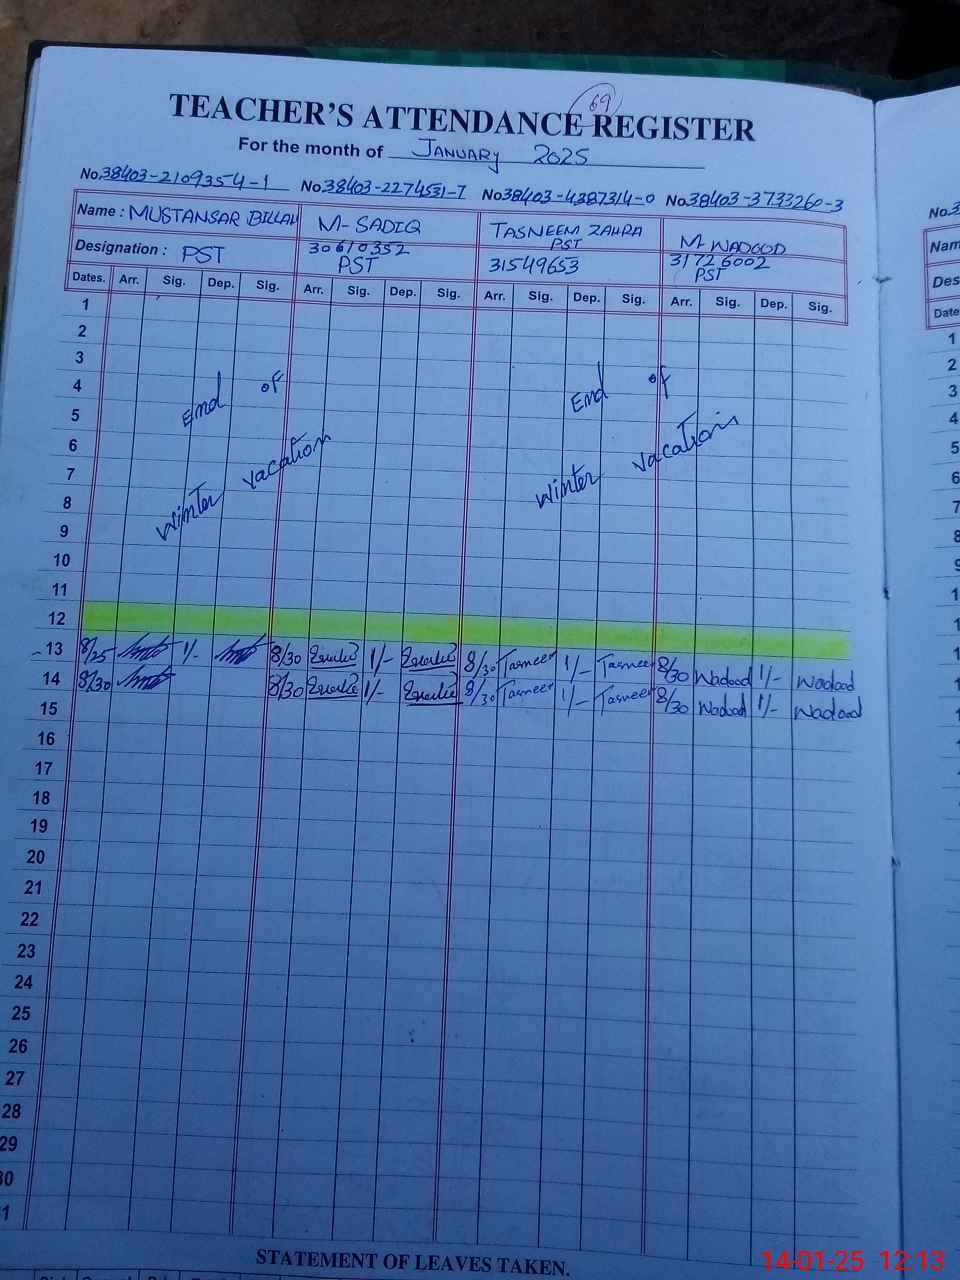 69
TEACHER'S ATTENDANCE REGISTER
For the month of JANUARY 2025
No. 38403-2109354-1 No 38403-2274531-7 No 38403-4387314-0 No 38403-3733260-3
Name : MUSTANSAR BILLAH M-SADIQ TASNEEM ZAHRA M-WADOOD
Designation : PST 30610352 PST PST 31549653 31726002 PST
Dates. Arr. Sig. Dep. Sig. Arr. Sig. Dep. Sig. Arr. Sig. Dep. Sig. Arr. Sig. Dep. Sig.
1
2
3
4
End of End of
5
6
7
winter vacation winter vacation
8
9
10
11
12
13 8/25 1/- 8/30 1/- 8/30 Tasneem 1/- Tasneem 8/30 Wadood 1/- Wadood
14 8/30 8/30 1/- 8/30 Tasneem 1/- Tasneem 8/30 Wadood 1/- Wadood
15
16
17
18
19
20
21
22
23
24
25
26
27
28
29
30
1
STATEMENT OF LEAVES TAKEN.
14-01-25 12:13
No.3
Nam
Des
Date
1
2
3
4
5
6
7
8